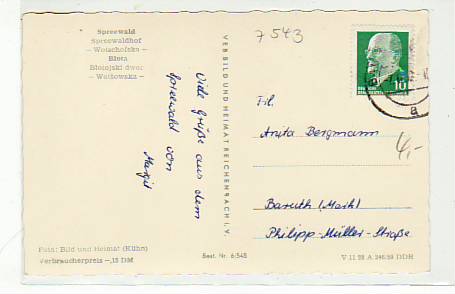 Spreewald
Spreewaldhof
– Wotschofska –
Błota
Błotojski dwor
– Wótšowska –
7543
VERB BILD UND HEIMAT REICHENBACH I. V.
Viele Grüße aus dem
Spreewald von
Margit
10
a
Frl.
Anita Bergmann
4,-
Baruth (Mark)
Philipp-Müller-Straße
Foto: Bild und Heimat (Kühn)
Verbraucherpreis –,15 DM
Best. Nr. 6/545
DDR